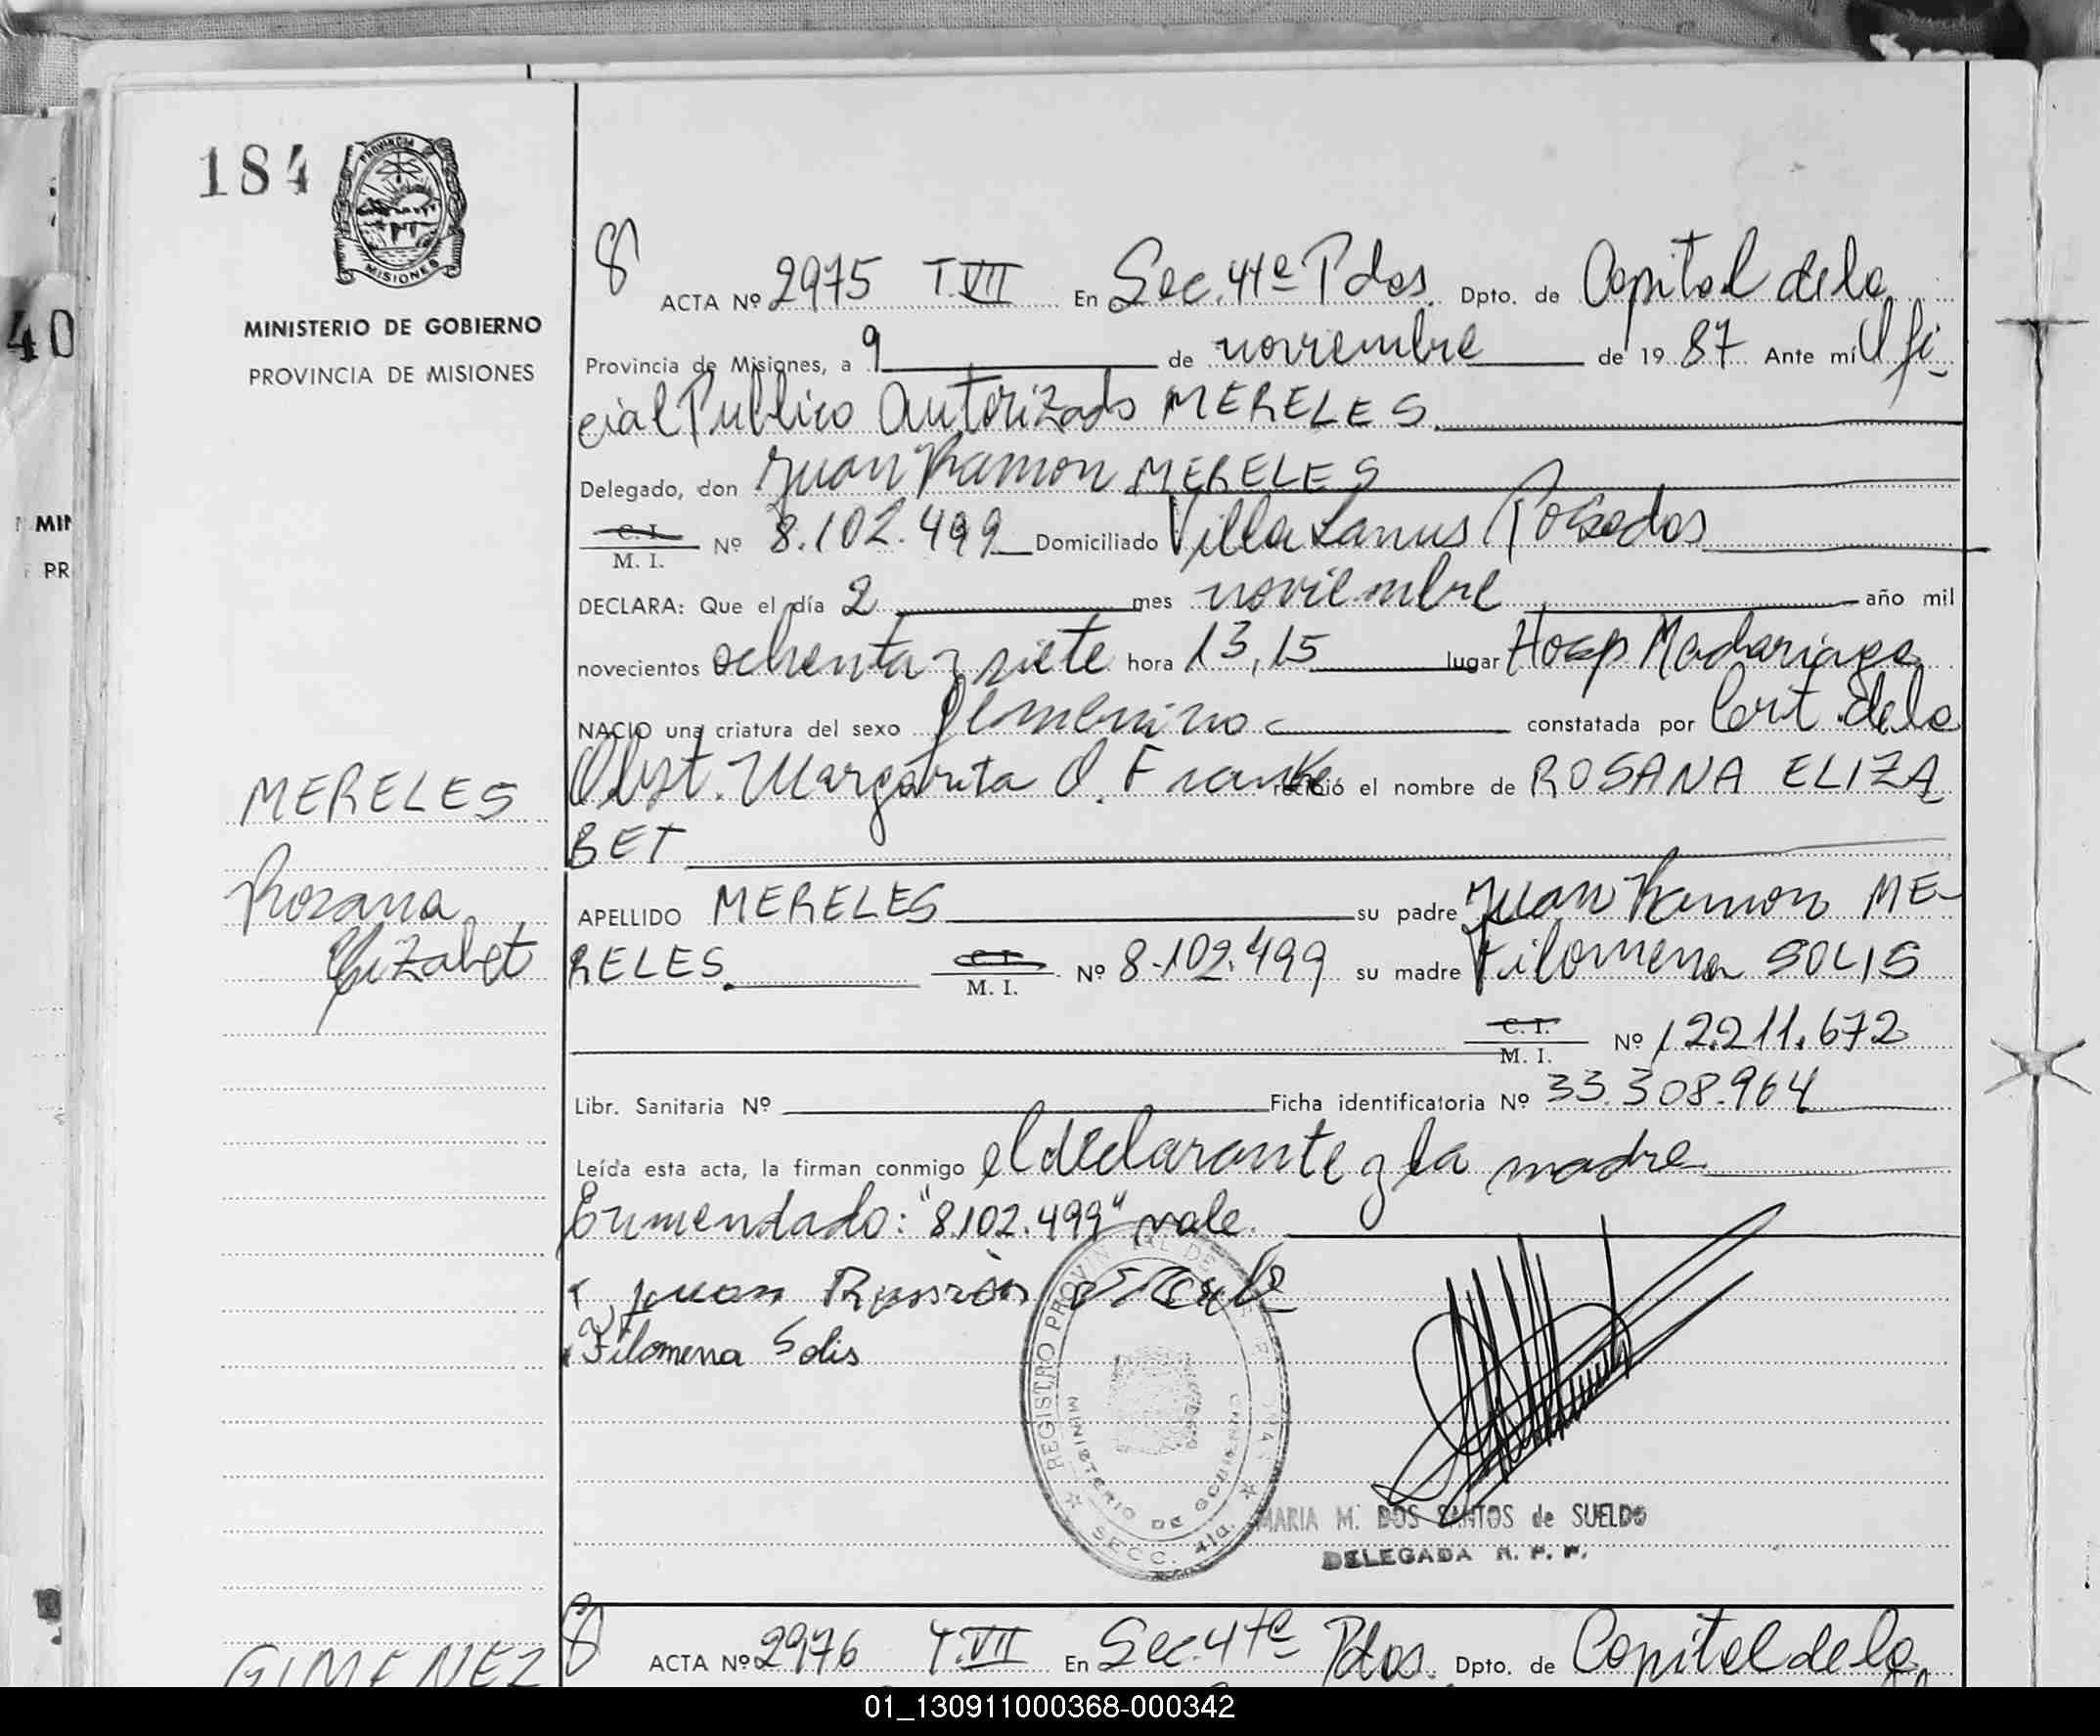 184
PROVINCIA
MISIONES
MINISTERIO DE GOBIERNO
PROVINCIA DE MISIONES
40
MIN
PR
8 ACTA Nº 2975 T.VII En Sec. 4ta Pdas. Dpto. de Capital de la
Provincia de Misiones, a 9 de noviembre de 1987 Ante mí Ofi-
cial Publico Autorizado MERELES
Delegado, don Juan Ramon MERELES
C. I.
M. I. Nº 8.102.499 Domiciliado Villa Lanus Posadas
DECLARA: Que el día 2 mes noviembre año mil
novecientos ochenta y siete hora 13,15 lugar Hosp Madariaga
NACIO una criatura del sexo femenino constatada por Cert. de la
Obst. Margarita O. Franke recibió el nombre de ROSANA ELIZA
BET
MERELES
Rosana
Elizabet
APELLIDO MERELES su padre Juan Ramon ME-
RELES C. I.
M. I. Nº 8.102.499 su madre Filomena SOLIS
C. I.
M. I. Nº 12.211.672
Libr. Sanitaria Nº Ficha identificatoria Nº 33.308.964
Leída esta acta, la firman conmigo el declarante y la madre
Enmendado: "8.102.499" vale.
Juan Ramón
Filomena Solis
REGISTRO PROVIN
MINISTERIO DE GOBIERNO
SECC. 4ta.
MARIA M. DOS SANTOS de SUELDO
DELEGADA R. P. P.
GIMENEZ
8 ACTA Nº 2976 T.VII En Sec. 4ta Pdas. Dpto. de Capital de la
01_130911000368-000342